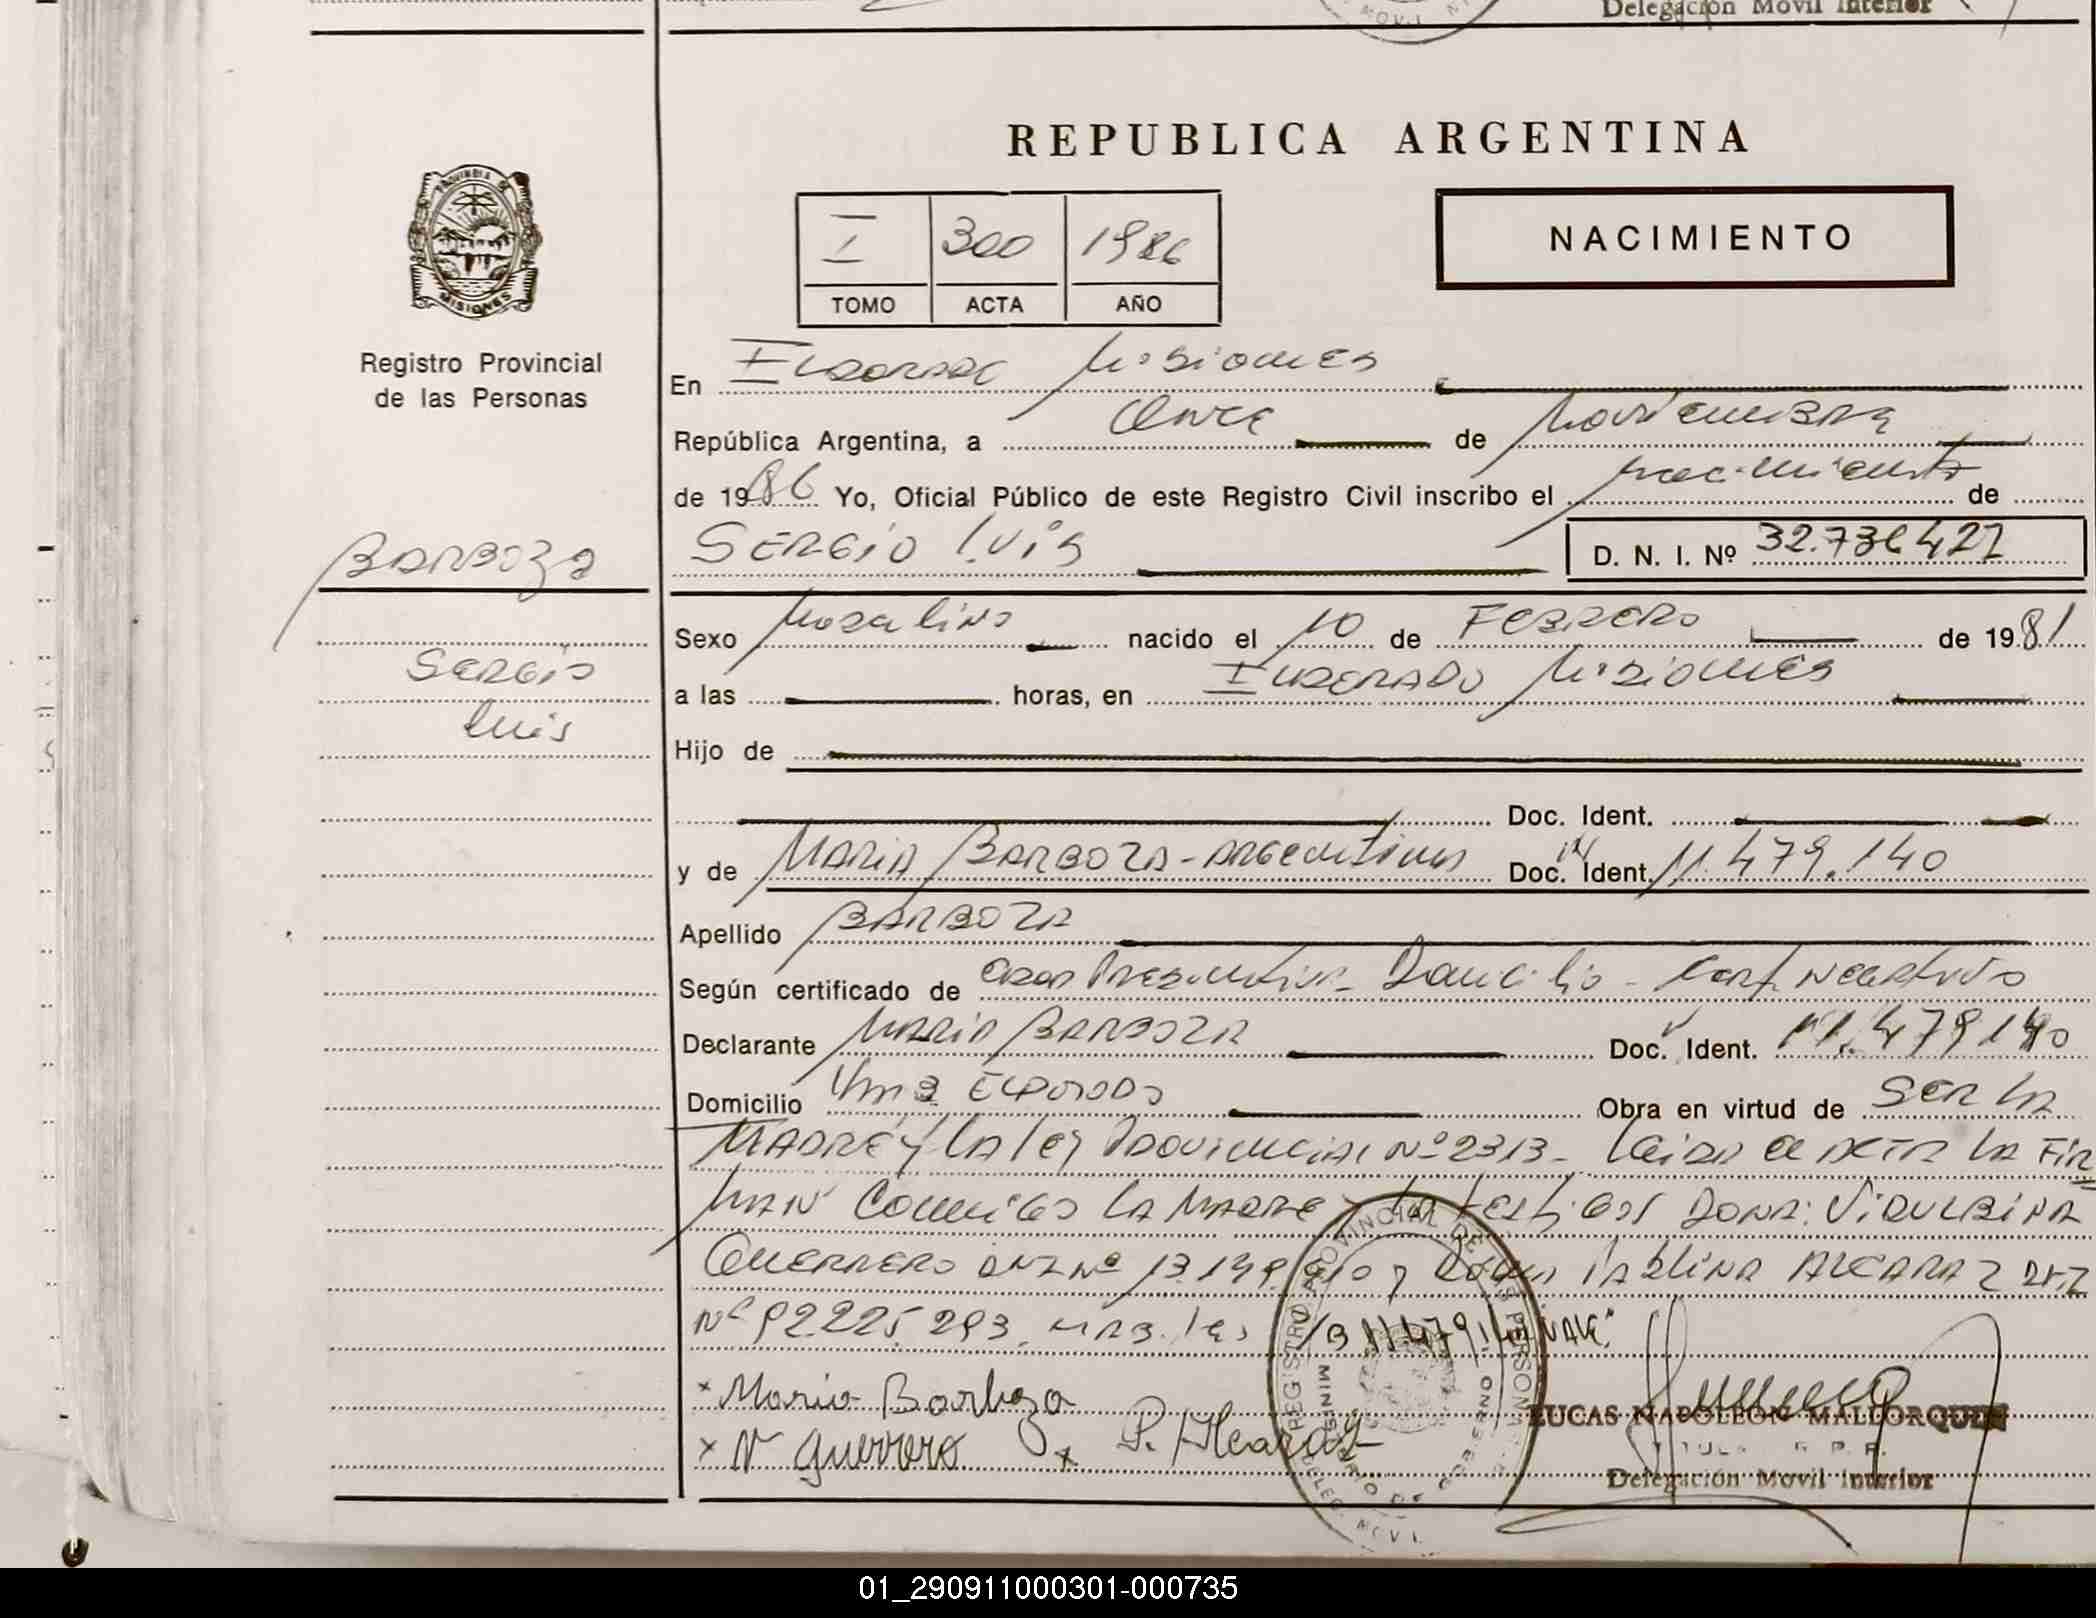 Delegación Movil Interior
REPUBLICA ARGENTINA
PROVINCIA DE
MISIONES
I 300 1986
TOMO ACTA AÑO
NACIMIENTO
Registro Provincial
de las Personas
BARBOZA
Sergio
Luis
En Eldorado Misiones
República Argentina, a Once de Noviembre
de 1986 Yo, Oficial Público de este Registro Civil inscribo el nacimiento de
SERGIO LUIS D. N. I. Nº 32.736.427
Sexo Masculino nacido el 10 de FEBRERO de 1981
a las horas, en Eldorado Misiones
Hijo de
Doc. Ident.
y de MARIA BARBOZA - Argentina Doc. Ident. 11.479.140
Apellido BARBOZA
Según certificado de Edad Presuntiva - Domicilio - Cert. Negativo
Declarante MARIA BARBOZA Doc. Ident. 11.479.140
Domicilio Eldorado Obra en virtud de SER LA
MADRE y LA LEY PROVINCIAL Nº 2313 - Leida el ACTA LA FIR
MAN Conmigo LA MADRE y testigos DOÑA: VIQULBINA
GUERRERO DNI Nº 13.149.910 y Doña PABLINA ALCARAZ DNI
Nº 92.225.293. 11.479.14 VALE"
x Maria Barboza
x V Guerrero x P. Alcaraz
REGISTRO PROVINCIAL DE LAS PERSONAS
MINISTERIO DE GOBIERNO
DELEG. MOVIL
LUCAS NAPOLEON MALLORQUIN
Delegación Movil Interior
01_290911000301-000735